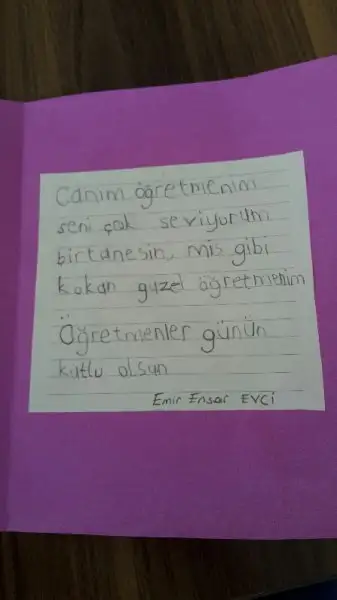 Canım öğretmenim
seni çok seviyorum
birtanesin, mis gibi
kokan güzel öğretmenim
Öğretmenler günün
kutlu olsun
Emir Ensar EVCİ